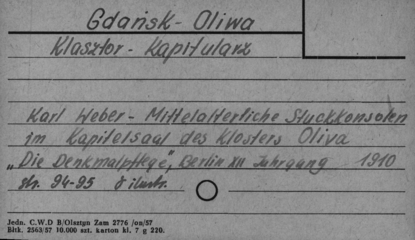 Gdańsk - Oliwa
Klasztor - Kapitularz
Karl Weber - Mittelalterliche Stuckkonsolen
im Kapitelsaal des Klosters Oliva
„Die Denkmalpflege”, Berlin XII Jahrgang 1910
str. 94-95 8 ilustr.
Jedn. C.W.D B/Olsztyn Zam 2776 /on/57
Bltk. 2563/57 10.000 szt. karton kl. 7 g 220.